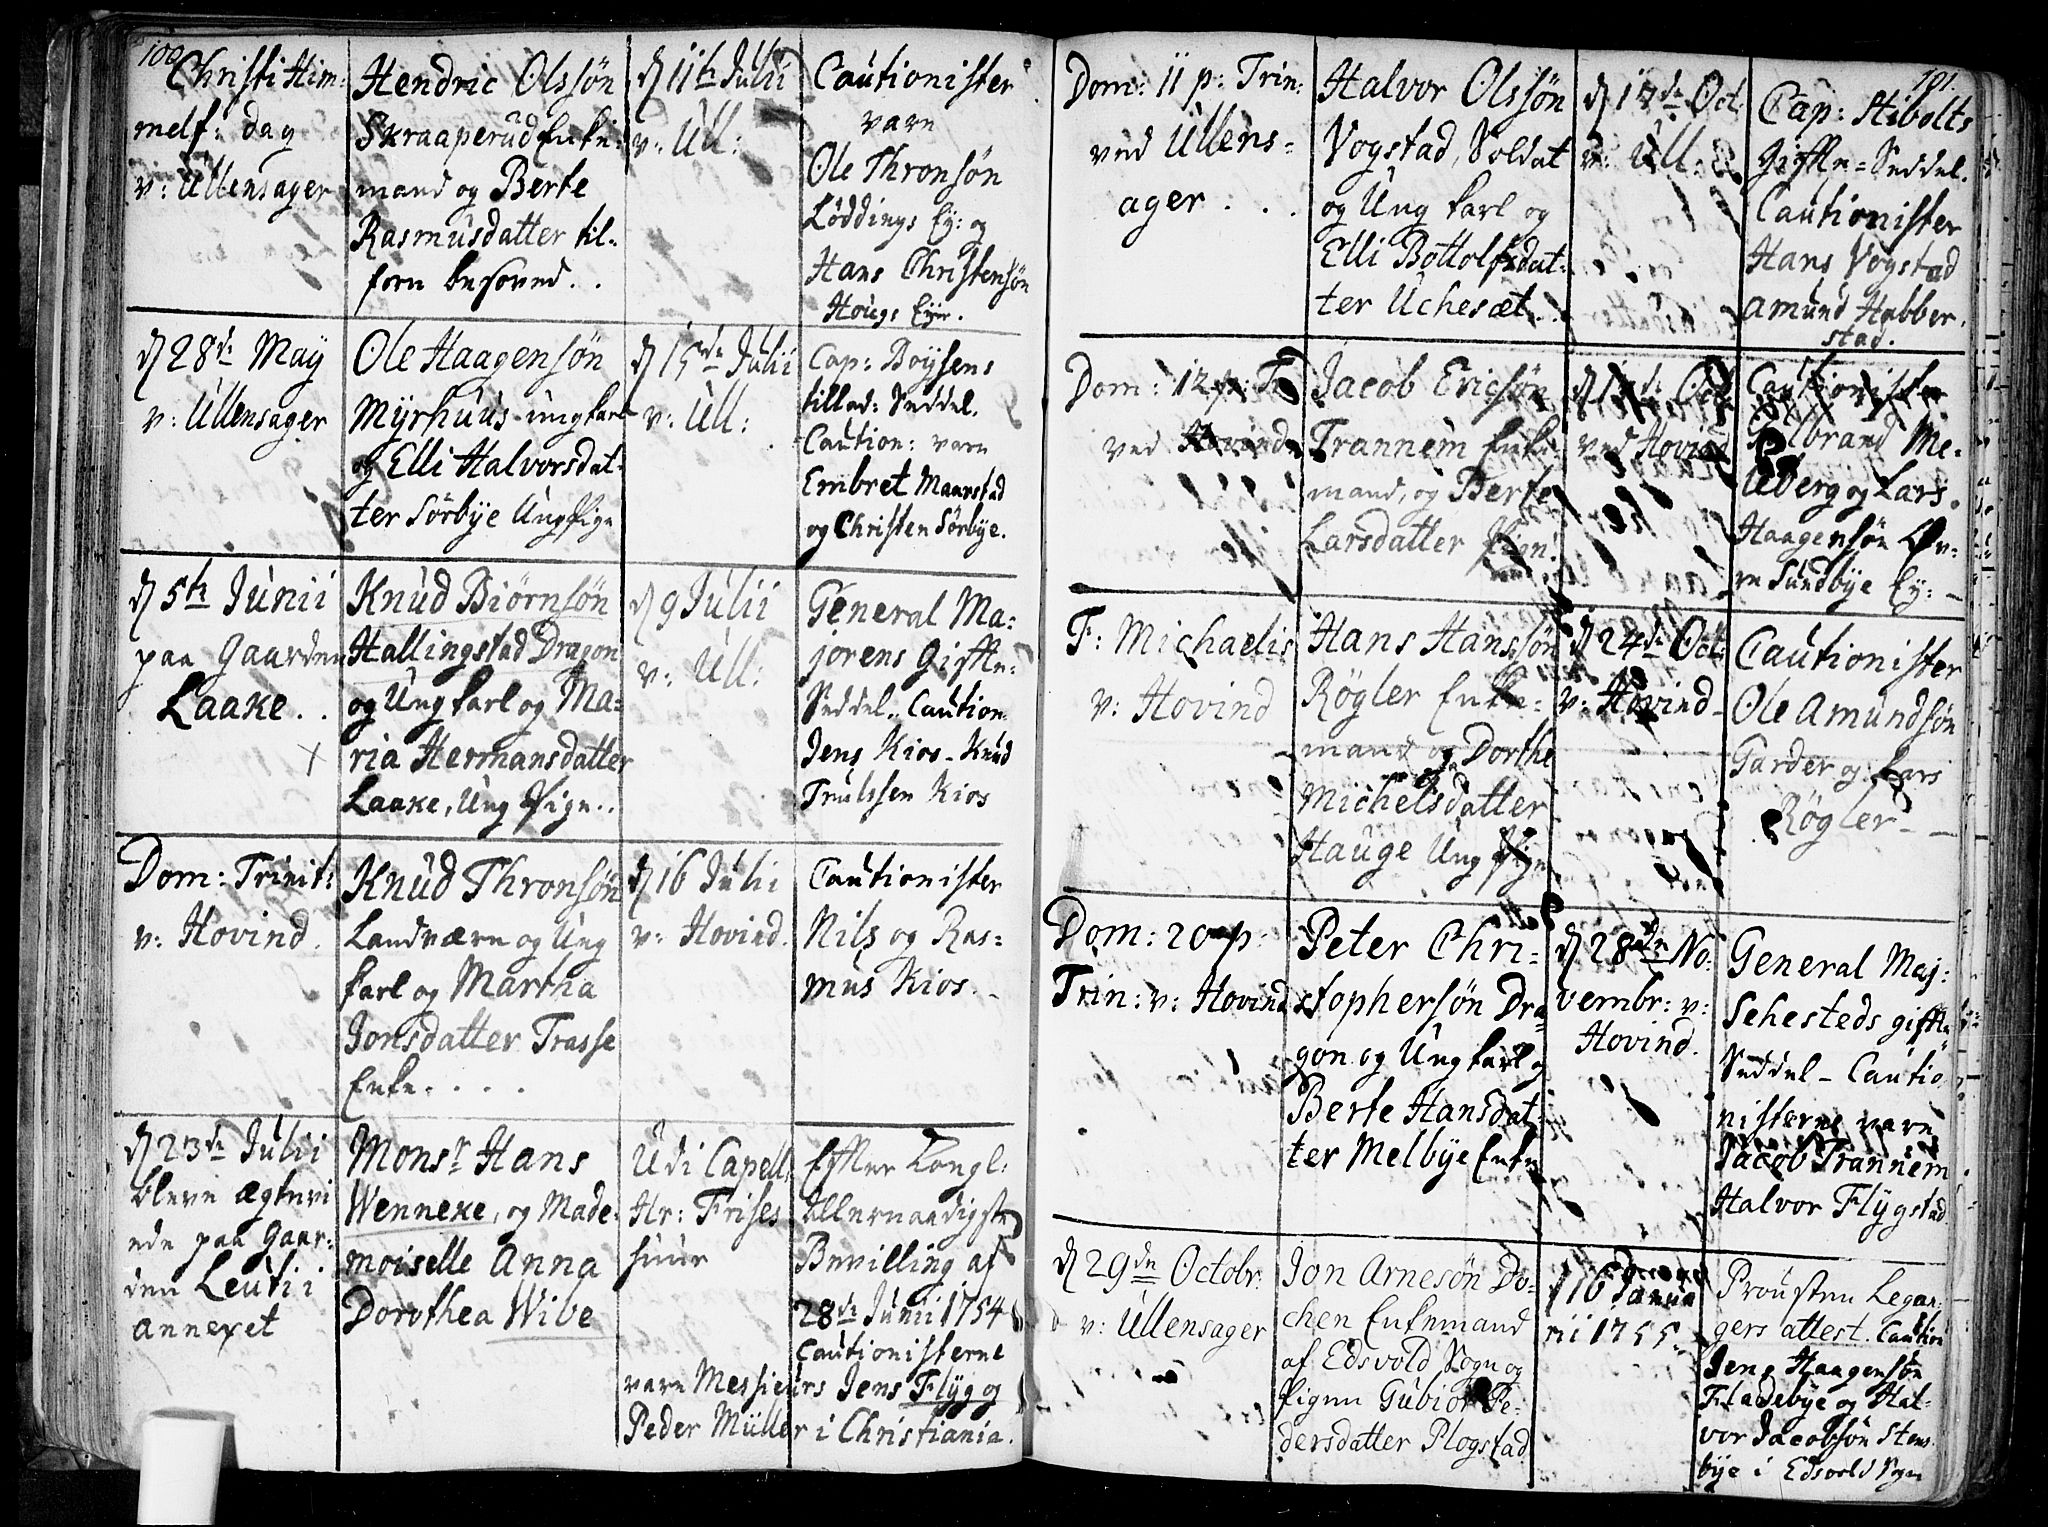 100
Christi Him=
melf: dag
v: Ullensager
Hendric Olssøn
Skraaperud Enke=
mand og Berte
Rasmusdatter til=
forn besoved. .
d 11te Julii
v: Ull:
Cautionister
vare
Ole Thronsøn
Løddings Ey: og
Hans Christensøn
Hougs Eyer.
d 28de May
v: Ullensager
Ole Haagensøn
Myrhuus ungkarl
og Elli Halvorsdat=
ter Sørbye Ungpige
d 15de Julii
v: Ull:
Cap: Boysens
tillad: Seddel.
Caution: vare
Embret Maarstad
og Christen Sørbye.
d 5te Junii
paa Gaarden
Laake. .
Knud Biørnsøn
Hallingstad Dragon
og Ungkarl og Ma=
ria Hermansdatter
Laake, Ung Pige. .
d 9 Julii
v: Ull:
General Ma=
jorens Giffte=
Seddel. Caution
Jens Kios - Knud
Trulssen Kios
Dom: Trinit:
v: Hovind.
Knud Thronsøn
Landværn og Ung
karl og Martha
Jonsdatter Trasse
Enke. . . .
d 16 Julii
v: Hovind.
Cautionister
Nils og Ras=
mus Kios.
d 23de Julii
bleve ægtevi
ede paa Gaar=
den Leuti i
annexet
Monsr Hans
Wenneke, og Made=
moiselle Anna
Dorothea Wibe
Udi Capell:
Hr: Frises
huus
Effter Kongl:
Allernaadigste
Bevilling af
28de Junii 1754
Cautionisterne
vare Messieurs Jens Flyg og
Peder Müller i Christiania.
101.
Dom: 11 p: Trin:
ved Ullens=
ager . . .
Halvor Olssøn
Vogstad, Soldat
og Ung karl og
Elli Bottolfsdat=
ter Uchesæt. .
Oct:
v: Ull:
Cap: Stibolts
Giffte=Seddel.
Cautionister
Hans Vogstad
Amund Habber
stad.
Dom: 12 p: Tr
ved Hovind
Jacob Ericsøn
Trannem Enke
mand, og Berte
Larsdatter Pige.
Oct
ved Hovind
Cautionister
Hilbrand Me=
lberg og Lars
Haagensøn Øv=
re Sundbye Ey: -
F: Michaelis
v: Hovind
Hans Hanssøn
Røgler Enke=
mand og Dorthe
Michelsdatter
Hauge Ung Pige
d 24de Oct:
v: Hovind
Cautionister
Ole Amundsøn
Garder og Lars
Røgler - -
Dom: 20 p:
Trin: v: Hovind
Peter Chri=
stophersøn Dra=
gon og Ungkarl og
Berte Hansdat=
ter Melbye Enke
d 28de No=
vembr: v:
Hovind.
General Maj:
Sehesteds giffte
Seddel - Cautio
nisterne vare
Jacob Trannem
Halvor Flygstad
d 29de Octobr:
v: Ullensager
Jon Arnesøn Do=
chen Enkemand
af Edsvold Sogn og
Pigen Gubiør Pe=
dersdatter Plogstad
d 16 Janua
rii 1755.
Prousten Legan=
gers attest. Caution
Jens Haagensøn
Fladebye og Hal=
vor Jacobsøn Stens
bye i Edsvold Sogn